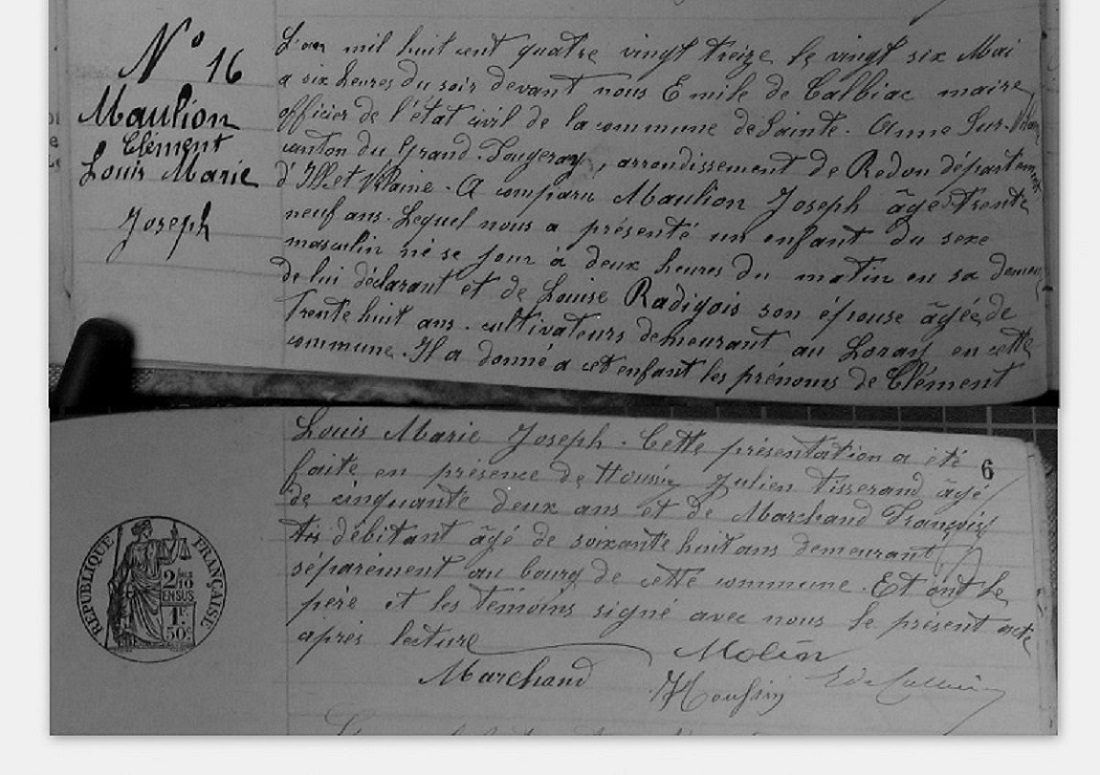 N° 16
Maulion
Clément
Louis Marie
Joseph
L'an mil huit cent quatre vingt treize le vingt six Mai
a six heures du soir devant nous Emile de Calbiac maire
officier de l'état civil de la commune de Sainte-Anne Sur-
canton du Grand-Fougeray, arrondissement de Redon département
d'Ille et Vilaine. A comparu Maulion Joseph âgé trente
neuf ans. Lequel nous a présenté un enfant du sexe
masculin né se jour à deux heures du matin en sa
de lui déclarant et de Louise Radigois son épouse âgée de
trente huit ans. cultivateurs demeurant au Loray en cette
commune. Il a donné a cet enfant les prénoms de Clément
Louis Marie Joseph. Cette présentation a été
6
faite en présence de Houssin Julien tisserand âgé
de cinquante deux ans et de Marchand François
débitant âgé de soixante huit ans demeurant
séparément au bourg de cette commune. Et ont le
père et les témoins signé avec nous le présent acte
après lecture
Marchand
Houssin
RÉPUBLIQUE FRANÇAISE
2/10
EN SUS
1F
50C